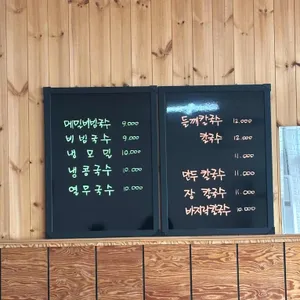 메밀비빔국수 9,000
비빔국수 9,000
냉모밀 10,000
냉콩국수 10,000
열무국수 10,000
들깨칼국수 12,000
칼국수 12,000
11,000
만두칼국수 11,000
장칼국수 11,000
바지락칼국수 10,000